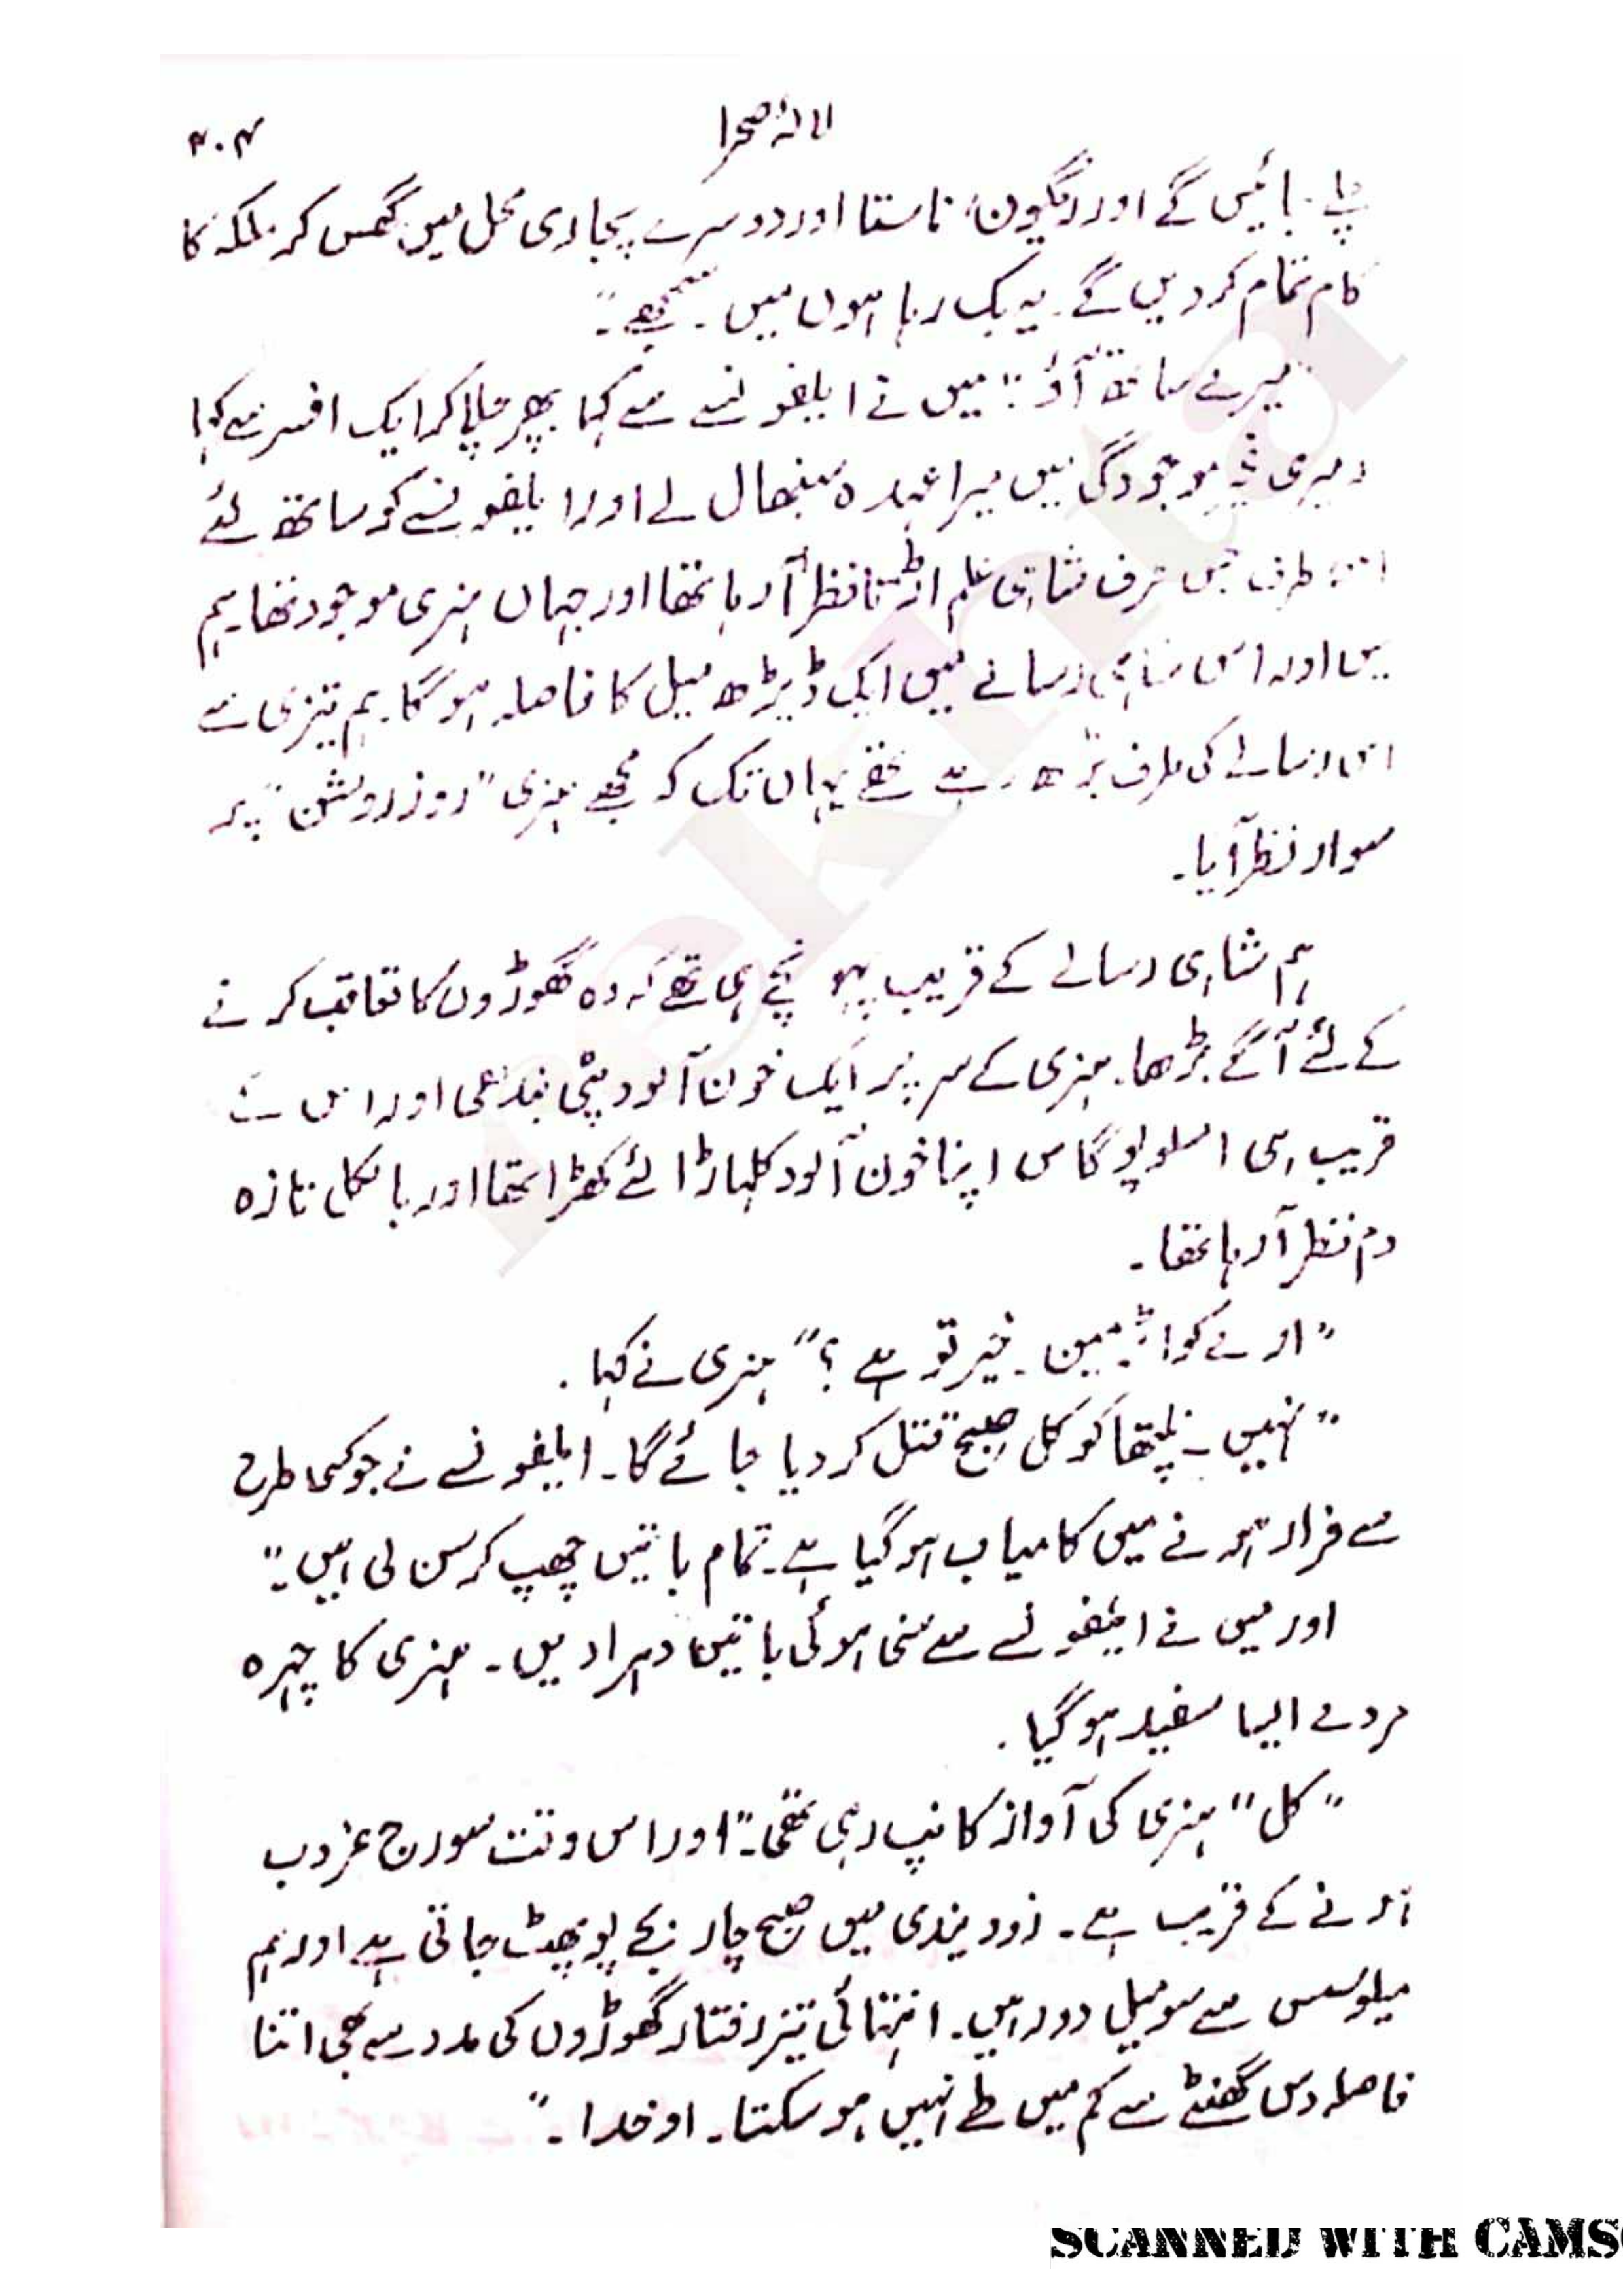 لالۂ صحرا
۳۰۴
چلے جائیں گے اور ریگون، ناستا اور دوسرے پجاری محل میں گھس کر ملکہ کا
کام تمام کر دیں گے۔ یہ بک رہا ہوں میں۔ سمجھے۔"
"میرے ساتھ آؤ:" میں نے ایلفونسے سے کہا پھر چلا کر ایک افسر سے کہا
میری غیر موجودگی میں میرا عہدہ سنبھال لے اور ایلفونسے کو ساتھ لئے
اس طرف جس طرف شاہی علم اڑتا نظر آ رہا تھا اور جہاں ہنری موجود تھا۔ ہم
میں اور اس شاہی رسالے میں ایک ڈیڑھ میل کا فاصلہ ہوگا۔ ہم تیزی سے
اس رسالے کی طرف بڑھ رہے تھے یہاں تک کہ مجھے ہنری "روز روشن" پر
سوار نظر آیا۔
ہم شاہی رسالے کے قریب پہونچے ہی تھے کہ وہ گھوڑوں کا تعاقب کرنے
کے لئے آگے بڑھا۔ ہنری کے سر پر ایک خون آلود پٹی بندھی اور اس کے
قریب ہی امسلوپوگاس اپنا خون آلود کلہاڑا لئے کھڑا تھا اور بالکل تازہ
دم نظر آ رہا تھا۔
"ارے کواٹرمین۔ خیر تو ہے؟" ہنری نے کہا۔
"نہیں۔ نلپتھا کو کل صبح قتل کر دیا جائے گا۔ ایلفونسے نے جو کسی طرح
سے فرار ہونے میں کامیاب ہو گیا ہے۔ تمام باتیں چھپ کر سن لی ہیں۔"
اور میں نے ایلفونسے سے سنی ہوئی باتیں دہرا دیں۔ ہنری کا چہرہ
مردے ایسا سفید ہو گیا۔
"کل" ہنری کی آواز کانپ رہی تھی۔" اور اس وقت سورج غروب
ہونے کے قریب ہے۔ زوویندی میں صبح چار بجے پو پھٹ جاتی ہے اور ہم
میلوسس سے سو میل دور ہیں۔ انتہائی تیز رفتار گھوڑوں کی مدد سے بھی اتنا
فاصلہ دس گھنٹے سے کم میں طے نہیں ہو سکتا۔ او خدا۔"
rekhta
SCANNED WITH CAMS